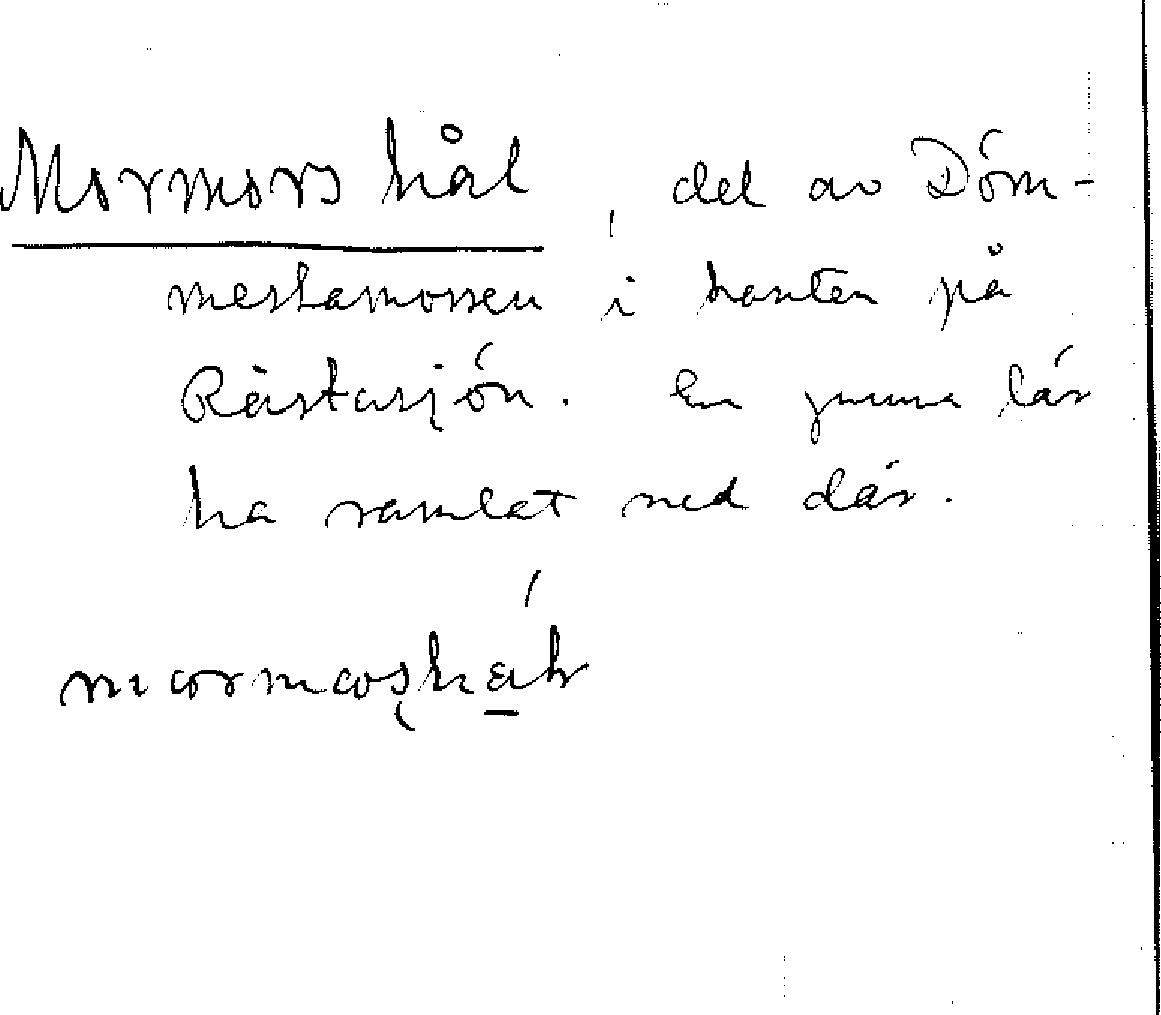 Mormors hål, del av Döm-
mestamossen i kanten på
Råstasjön. En gumma lär
ha ramlat ned där.